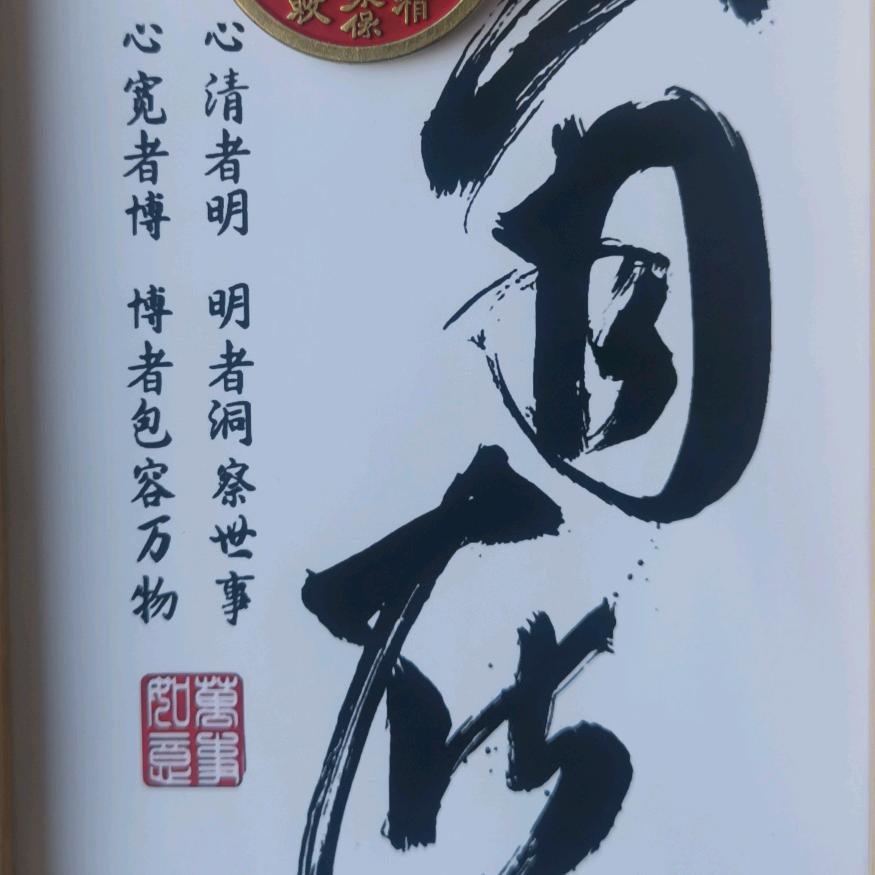 自在
心清者明 明者洞察世事
心宽者博 博者包容万物
萬事
如意